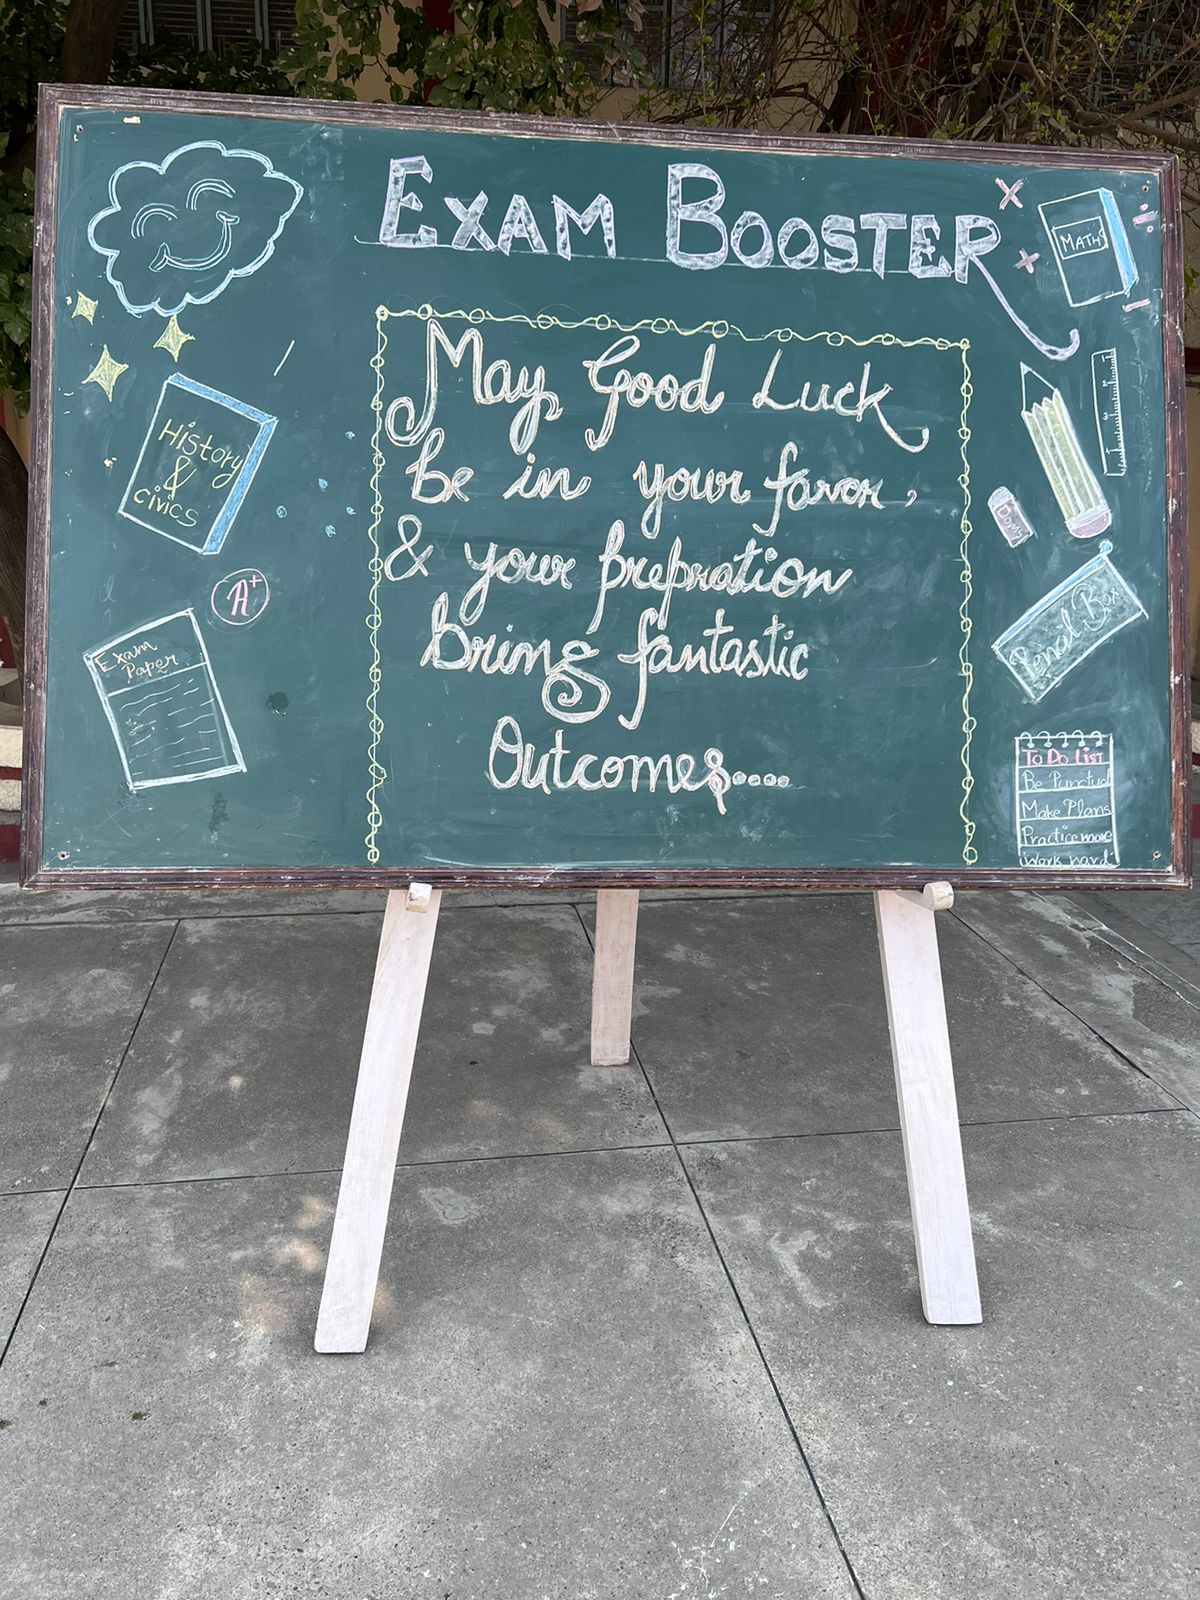 EXAM BOOSTER
May Good Luck
be in your favor,
& your prepration
bring fantastic
Outcomes....
History
&
civics
A+
Exam
Paper
MATHS
Doms
Pencil Box
To Do LIST
Be Punctual
Make Plans
Practice more
Work hard